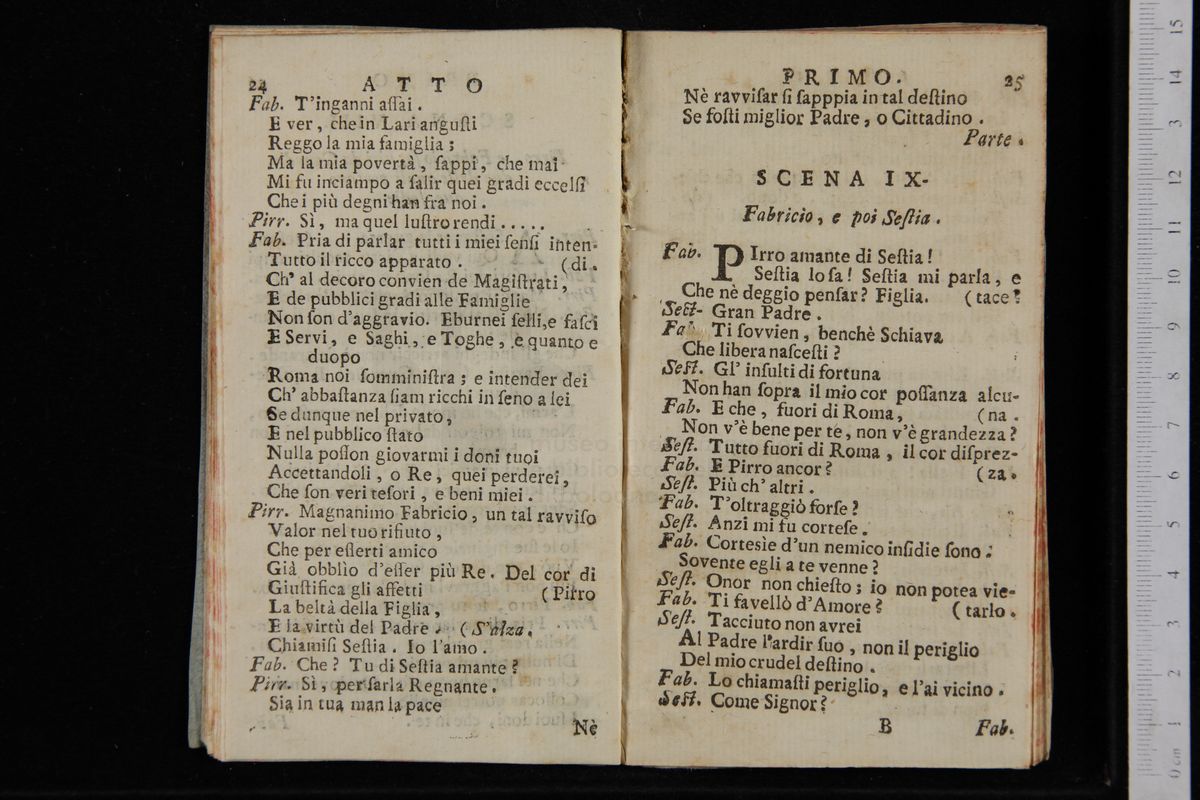 24 A T T O
Fab. T'inganni aſſai.
E ver, che in Lari anguſti
Reggo la mia famiglia;
Ma la mia povertà, ſappi, che mai
Mi fu inciampo a ſalir quei gradi eccelſi
Che i più degni han fra noi.
Pirr. Sì, ma quel luſtro rendi.....
Fab. Pria di parlar tutti i miei ſenſi inten-
Tutto il ricco apparato. (di.
Ch' al decoro convien de Magiſtrati,
E de pubblici gradi alle Famiglie
Non ſon d'aggravio. Eburnei ſelli, e faſci
E Servi, e Saghi, e Toghe, e quanto e
duopo
Roma noi ſomminiſtra; e intender dei
Ch' abbaſtanza ſiam ricchi in ſeno a lei
Se dunque nel privato,
E nel pubblico ſtato
Nulla poſſon giovarmi i doni tuoi
Accettandoli, o Re, quei perderei,
Che ſon veri teſori, e beni miei.
Pirr. Magnanimo Fabricio, un tal ravviſo
Valor nel tuo rifiuto,
Che per eſſerti amico
Già obblìo d'eſſer più Re. Del cor di
Giuſtifica gli affetti (Pirro
La beltà della Figlia,
E la virtù del Padre. (S'alza.
Chiamiſi Seſtia. Io l'amo.
Fab. Che? Tu di Seſtia amante?
Pirr. Sì, per farla Regnante.
Sia in tua man la pace
Nè
PRIMO. 25
Nè ravviſar ſi ſapppia in tal deſtino
Se foſti miglior Padre, o Cittadino.
Parte.
SCENA IX-
Fabricio, e poi Seſtia.
Fab. PIrro amante di Seſtia!
Seſtia lo ſa! Seſtia mi parla, e
Che nè deggio penſar? Figlia. (tace?
Seſt- Gran Padre.
Fab. Ti ſovvien, benchè Schiava
Che libera naſceſti?
Seſt. Gl' inſulti di fortuna
Non han ſopra il mio cor poſſanza alcu-
Fab. E che, fuori di Roma, (na.
Non v'è bene per te, non v'è grandezza?
Seſt. Tutto fuori di Roma, il cor diſprez-
Fab. E Pirro ancor? (za.
Seſt. Più ch' altri.
Fab. T'oltraggiò forſe?
Seſt. Anzi mi fu corteſe.
Fab. Cortesìe d'un nemico inſidie ſono.
Sovente egli a te venne?
Seſt. Onor non chieſto; io non potea vie-
Fab. Ti favellò d'Amore? (tarlo.
Seſt. Tacciuto non avrei
Al Padre l'ardir ſuo, non il periglio
Del mio crudel deſtino.
Fab. Lo chiamaſti periglio, e l'ai vicino.
Seſt. Come Signor?
B Fab.